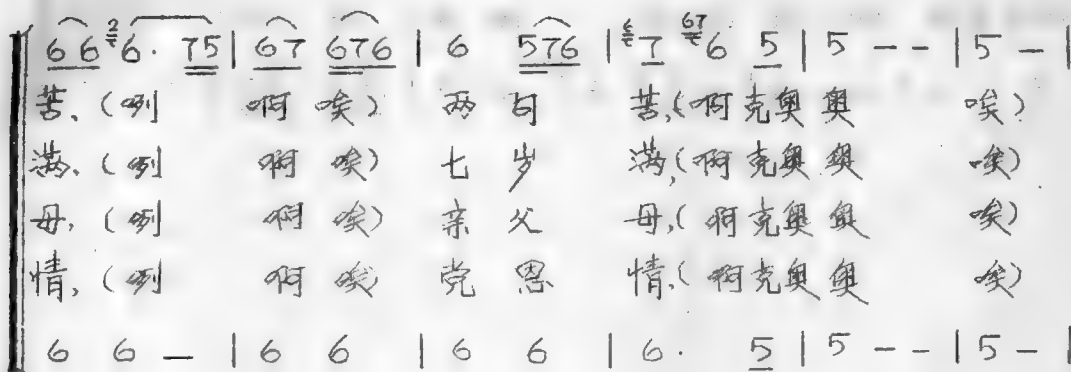 6 6 2 6· 75 | 67 676 | 6 576 | 6 7 67 6 5 | 5 - - | 5 - |
苦、(咧 啊 唉) 两句 苦,(啊克奥奥 唉)
满、(咧 啊 唉) 七岁 满,(啊克奥奥 唉)
母,(咧 啊 唉) 亲父 母,(啊克奥奥 唉)
情,(咧 啊 唉) 党恩 情,(啊克奥奥 唉)
6 6 — | 6 6 | 6 6 | 6· 5 | 5 - - | 5 - |